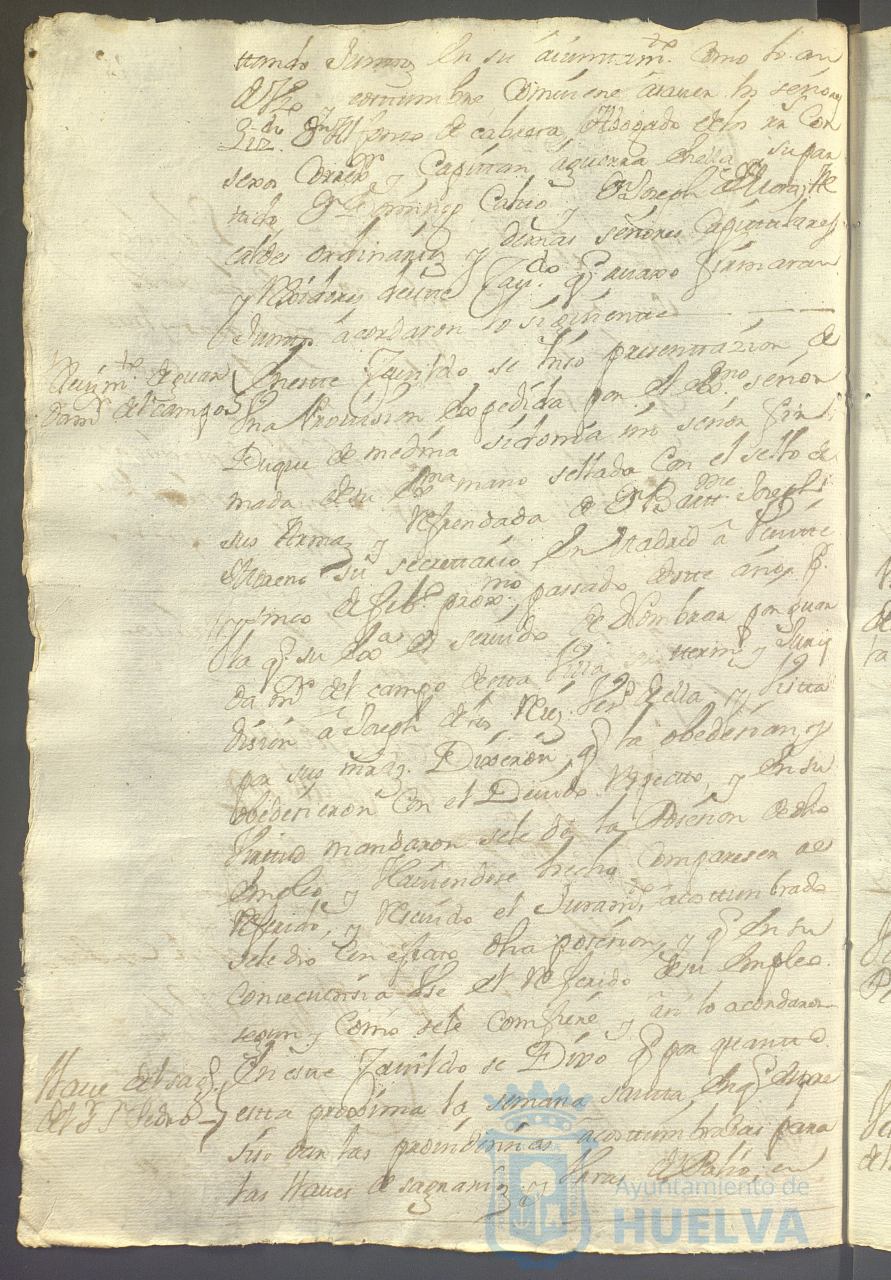 ttando Juntos En su aiuntamto. Como lo an
de Uso y costumbre, Combiene a saver los señores
Lizdo. Dn Alfonso de cabrera Abogado delos Rs Con
sexos Correxor. y Capittan aguerra della y su par
tido Dn Calvo y Dn Joseph Al
caldes ordinarios y demas señores Capitulares
y Rexidores deeste Cavdo. q. avaxo firmaran
Juntos acordaron lo siguiente
Nomymto. de guar
damr. del campo
Eneste Cavildo se hiso presentazion de
Una Provision Expedida por el Exmo señor
Duque de medina sidonia mi señor fir
mada desu Exma mano sellada con el sello de
sus Armas y Refrendada de Dn Joseph
Moreno su secrettario, En Madrid a Veintte
y sinco de febo. proxmo. passado deste año, Pr.
la q. su Exa. es servido de Nombrar por guar
da mr. del campo desta Villa su termino y Juris
disión a Joseph delos Reies Veso. della y Vista
por sus mrds. Dixeron q. la obedesian y
obedesieron con el Devido respecto, y En su
Virtud mandaron sele de la Posesion dedho
Empleo y Haviendose hecho comparesen al
Referido, y Resivido el Juramto. acostumbrado
sele dio Eneste acto dha posesion, y q. En su
Consecuensia Use el Referido desu Empleo
segun y como sele Confiere y asi lo acordaron
Llave del sagro.
de Sr. Sn Pedro
En este Cavildo se Dixo q. por quanto
estta proxima la semana santa, En q. es pre
siso dar las providencias acosttumbradas para
las llaves de sagrarios, y Varas de Palio, en
Ayuntamiento de
HUELVA